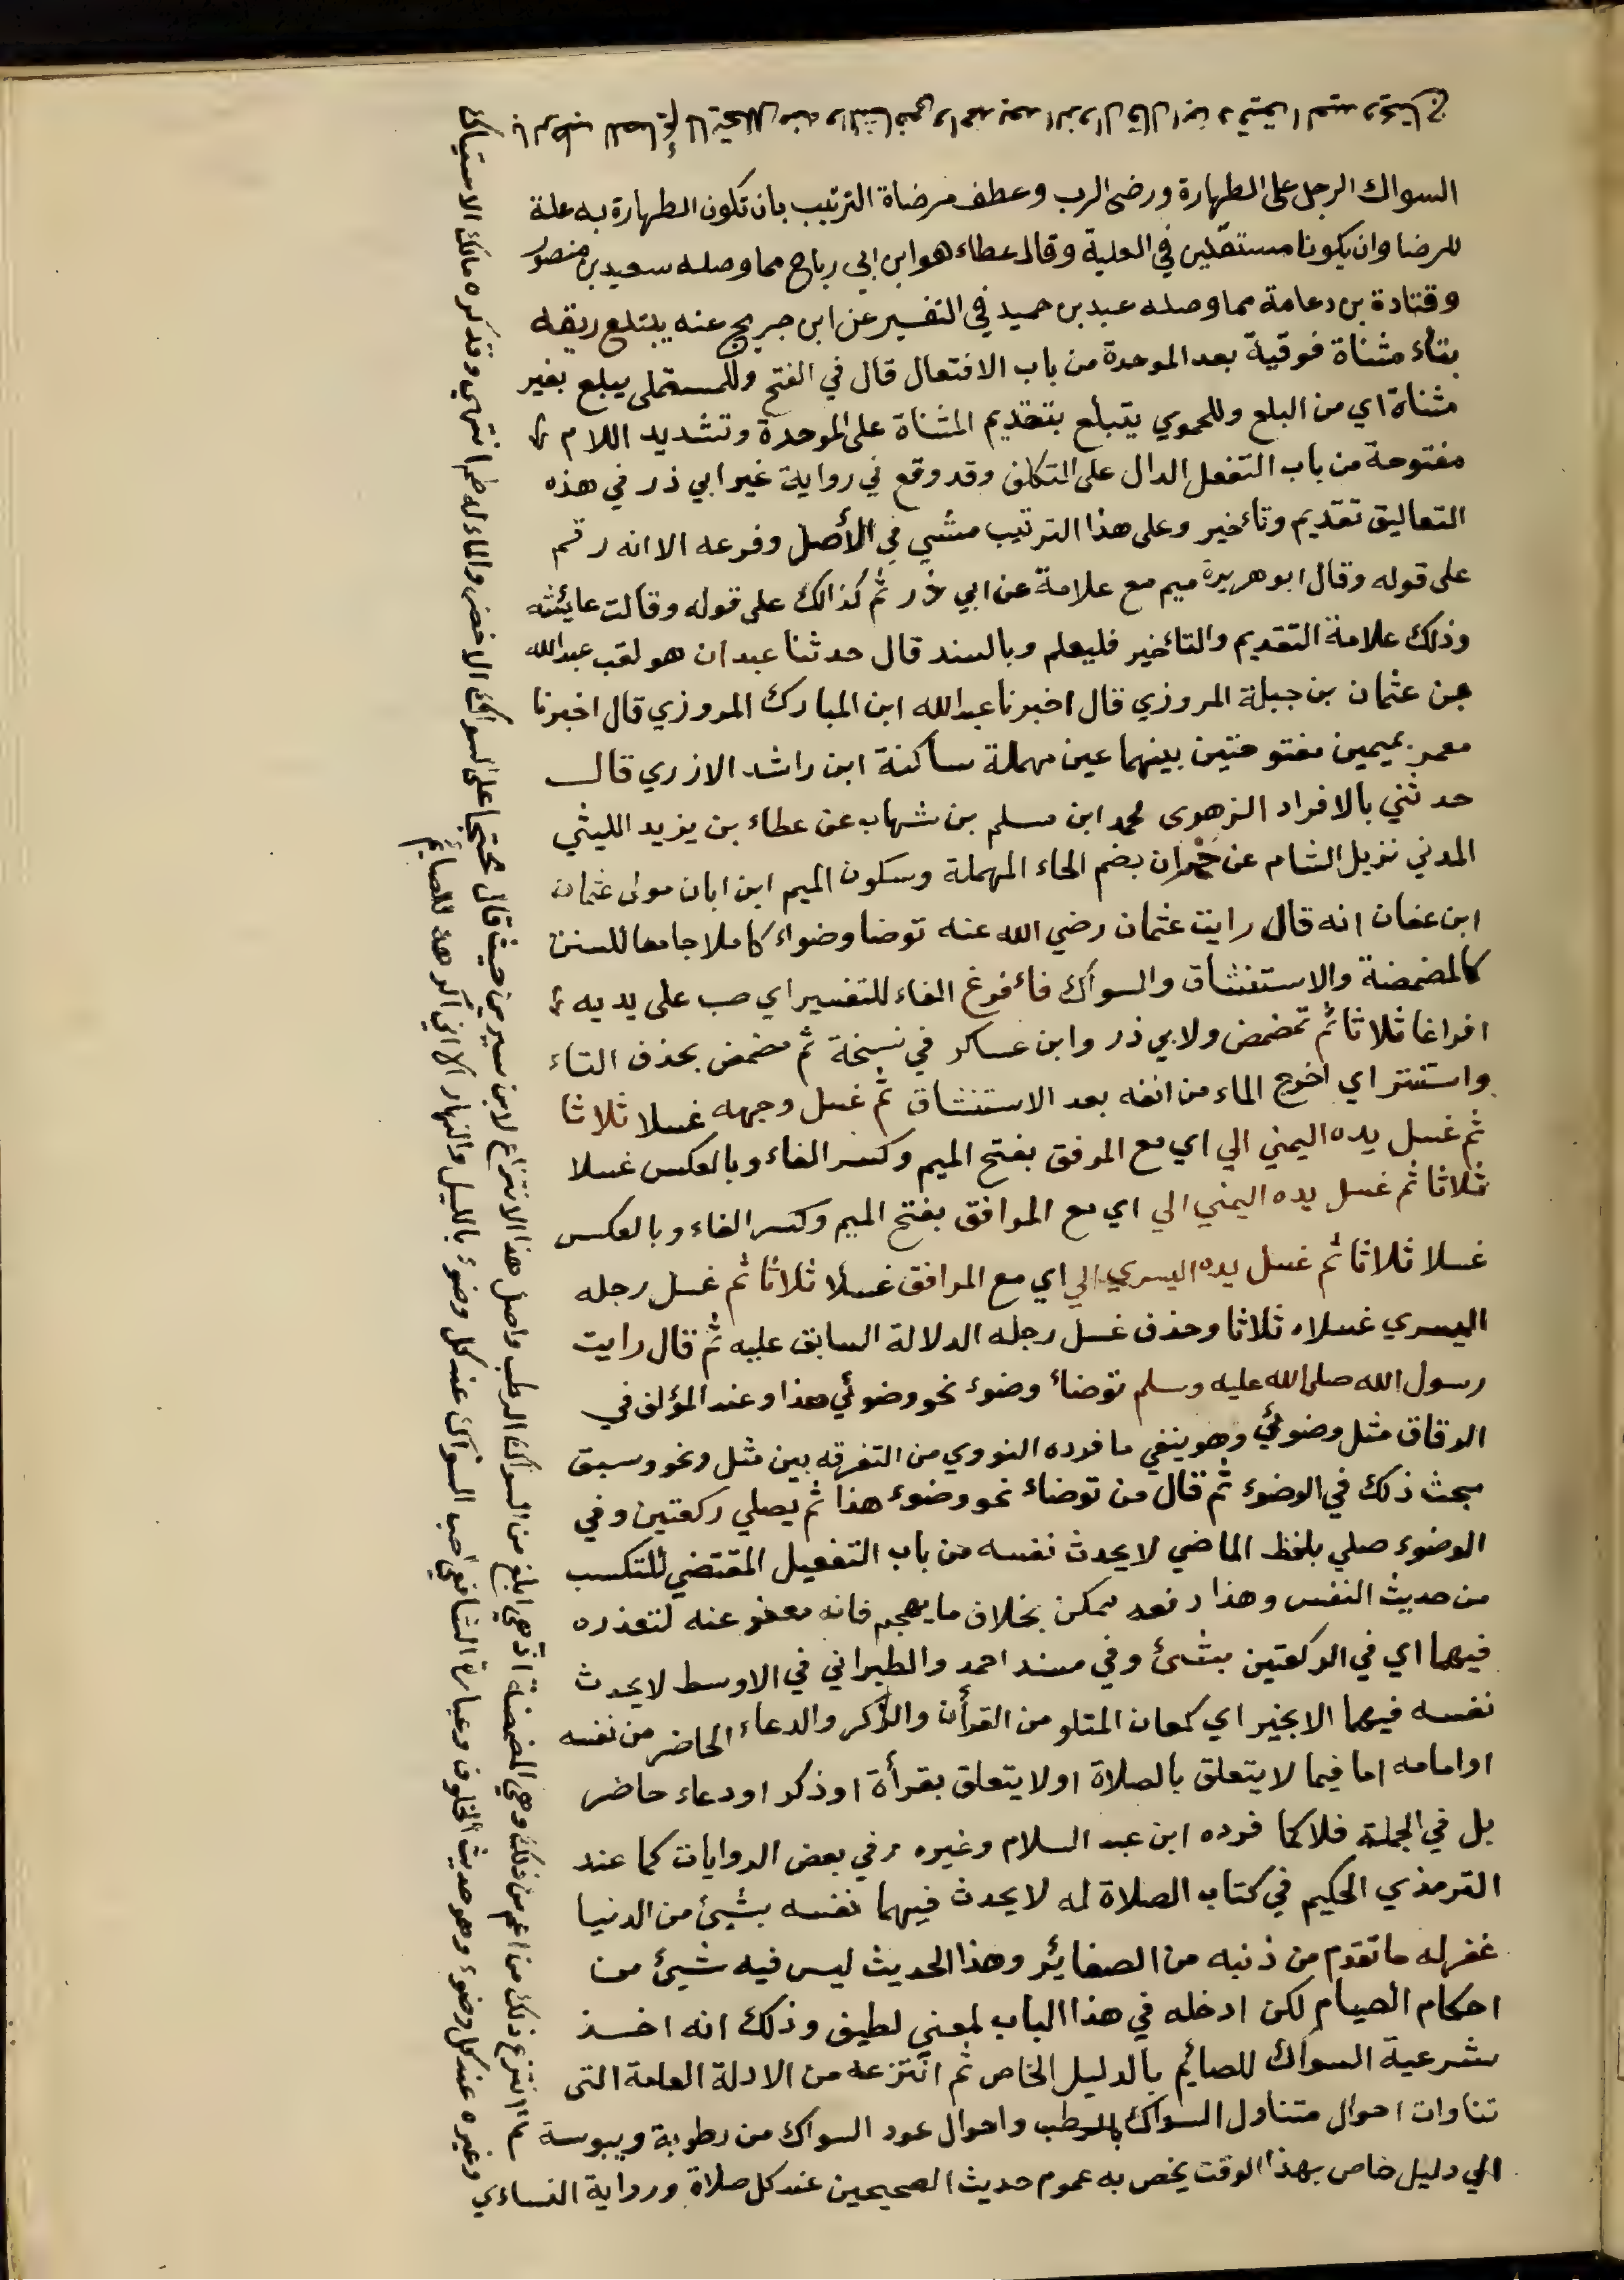 السواك الرجل على الطهارة ورضى الرب وعطف مرضاة الترتيب بان تكون الطهارة به علة
للرضا وان يكونا مستقلين في العلية وقال عطاء هو ابن ابي رباح مما وصله سعيد بن منصور
وقتادة بن دعامة مما وصله عبد بن حميد في التفسير عن ابن جريج عنه يبتلع ريقه
بتاء مثناة فوقية بعد الموحدة من باب الافتعال قال في الفتح وللمستملى يبلع بغير
مثناة اي من البلع وللحموي يتبلع بتقديم المثناة على الموحدة وتشديد اللام
مفتوحة من باب التفعل الدال على التكلف وقد وقع في رواية غير ابي ذر في هذه
التعاليق تقديم وتأخير وعلى هذا الترتيب مشي في الأصل وفرعه الا انه رقم
على قوله وقال ابو هريرة ميم مع علامة عن ابي ذر ثم كذالك على قوله وقالت عايشه
وذلك علامة التقديم والتأخير فليعلم وبالسند قال حدثنا عبدان هو لقب عبدالله
بن عثمان بن جبلة المروزي قال اخبرنا عبدالله ابن المبارك المروزي قال اخبرنا
معمر بميمين مفتوحتين بينهما عين مهملة ساكنة ابن راشد الازري قال
حدثني بالافراد الزهوى محمد ابن مسلم بن شهاب عن عطاء بن يزيد الليثي
المدني نزيل الشام عن حمران بضم الحاء المهملة وسكون الميم ابن ابان مولى عثمان
ابن عفان انه قال رايت عثمان رضي الله عنه توضا وضواء كاملا جامعا للسنن
كالمضمضة والاستنشاق والسواك فأفرغ الفاء للتفسير اي صب على يديه
افراغا ثلاثا ثم تمضمض ولابي ذر وابن عساكر في نسخة ثم مضمض بحذف التاء
واستنثر اي اخرج الماء من انفه بعد الاستنشاق ثم غسل وجهه غسلا ثلاثا
ثم غسل يده اليمني الي اي مع المرفق بفتح الميم وكسر الفاء وبالعكس غسلا
ثلاثا ثم غسل يده اليمني الي اي مع المرافق بفتح الميم وكسر الفاء وبالعكس
غسلا ثلاثا ثم غسل يده اليسري الي اي مع المرافق غسلا ثلاثا ثم غسل رجله
اليسري غسلاء ثلاثا وحذف غسل رجله الدلالة السابق عليه ثم قال رايت
رسول الله صلى الله عليه وسلم توضاء وضوء نحو وضوئي هذا وعند المؤلف في
الرقاق مثل وضوئي وهو ينفي ما قرره النووي من التفرقه بين مثل ونحو وسبق
مبحث ذلك في الوضوء ثم قال من توضاء نحو وضوء هذا ثم يصلي ركعتين وفي
الوضوء صلي بلفظ الماضي لا يحدث نفسه من باب التفعيل المقتضي للتكسب
من حديث النفس وهذا دفعه ممكن بخلاف ما يهجم فانه معفو عنه لتعذره
فيهما اي في الركعتين بشئ وفي مسند احمد والطبراني في الاوسط لا يحدث
نفسه فيهما الا بخير اي كمعان المتلو من القرأن والذكر والدعاء الحاضر من نفسه
او امامه اما فيما لا يتعلق بالصلاة او لا يتعلق بقرأة او ذكر او دعاء حاضر
بل في الجملة فلا كما قرره ابن عبد السلام وغيره وفي بعض الروايات كما عند
الترمذي الحكيم في كتاب الصلاة له لا يحدث فيهما نفسه بشيئ من الدنيا
غفر له ما تقدم من ذنبه من الصغايئر وهذا الحديث ليس فيه شيئ من
احكام الصيام لكن ادخله في هذا الباب لمعني لطيف وذلك انه اخذ
شرعية السواك للصايم بالدليل الخاص ثم انتزعه من الادلة العامة التى
تناوات احوال متناول السواك بالرطب واحوال عود السواك من رطوبة ويبوسة
ثم انتزع ذلك من اعم من ذلك وهي المضمضة اذ هي ابلغ من السواك الرطب واصل هذا الانتزاع لابن سيرين حيث قال محتجا على السواك الاخضر والماء له طعم انتهي وقد كره مالك الاستياك
بالرطب للصايم لما يتحلل منه والشافعي واحمد بعد الزوال قال ابن دقيق العيد ويحتاج
الي دليل خاص بهذا الوقت يخص به عموم حديث الصحيحين عند كل صلاة ورواية النساءي
وغيره عند كل وضوء وهو حديث الخلوف وعبارة الشافعي احب السواك عند كل وضوء بالليل والنهار الا اني اكرهه للصايم